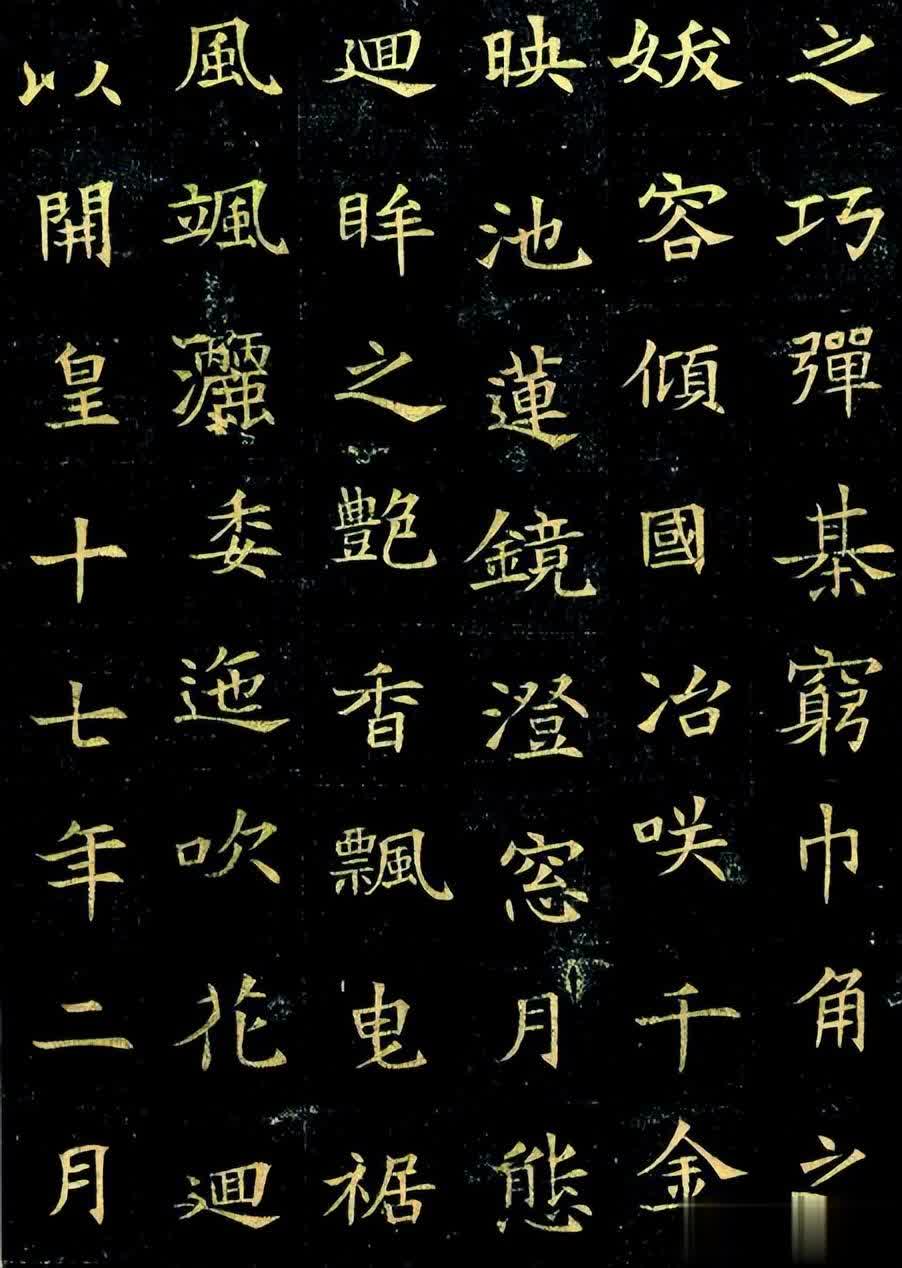 之巧彈棊窮巾角之
妭容傾國冶咲千金
映池蓮鏡澄窓月態
迴眸之艶香飄曵裾
風颯灑委迤吹花迴
以開皇十七年二月